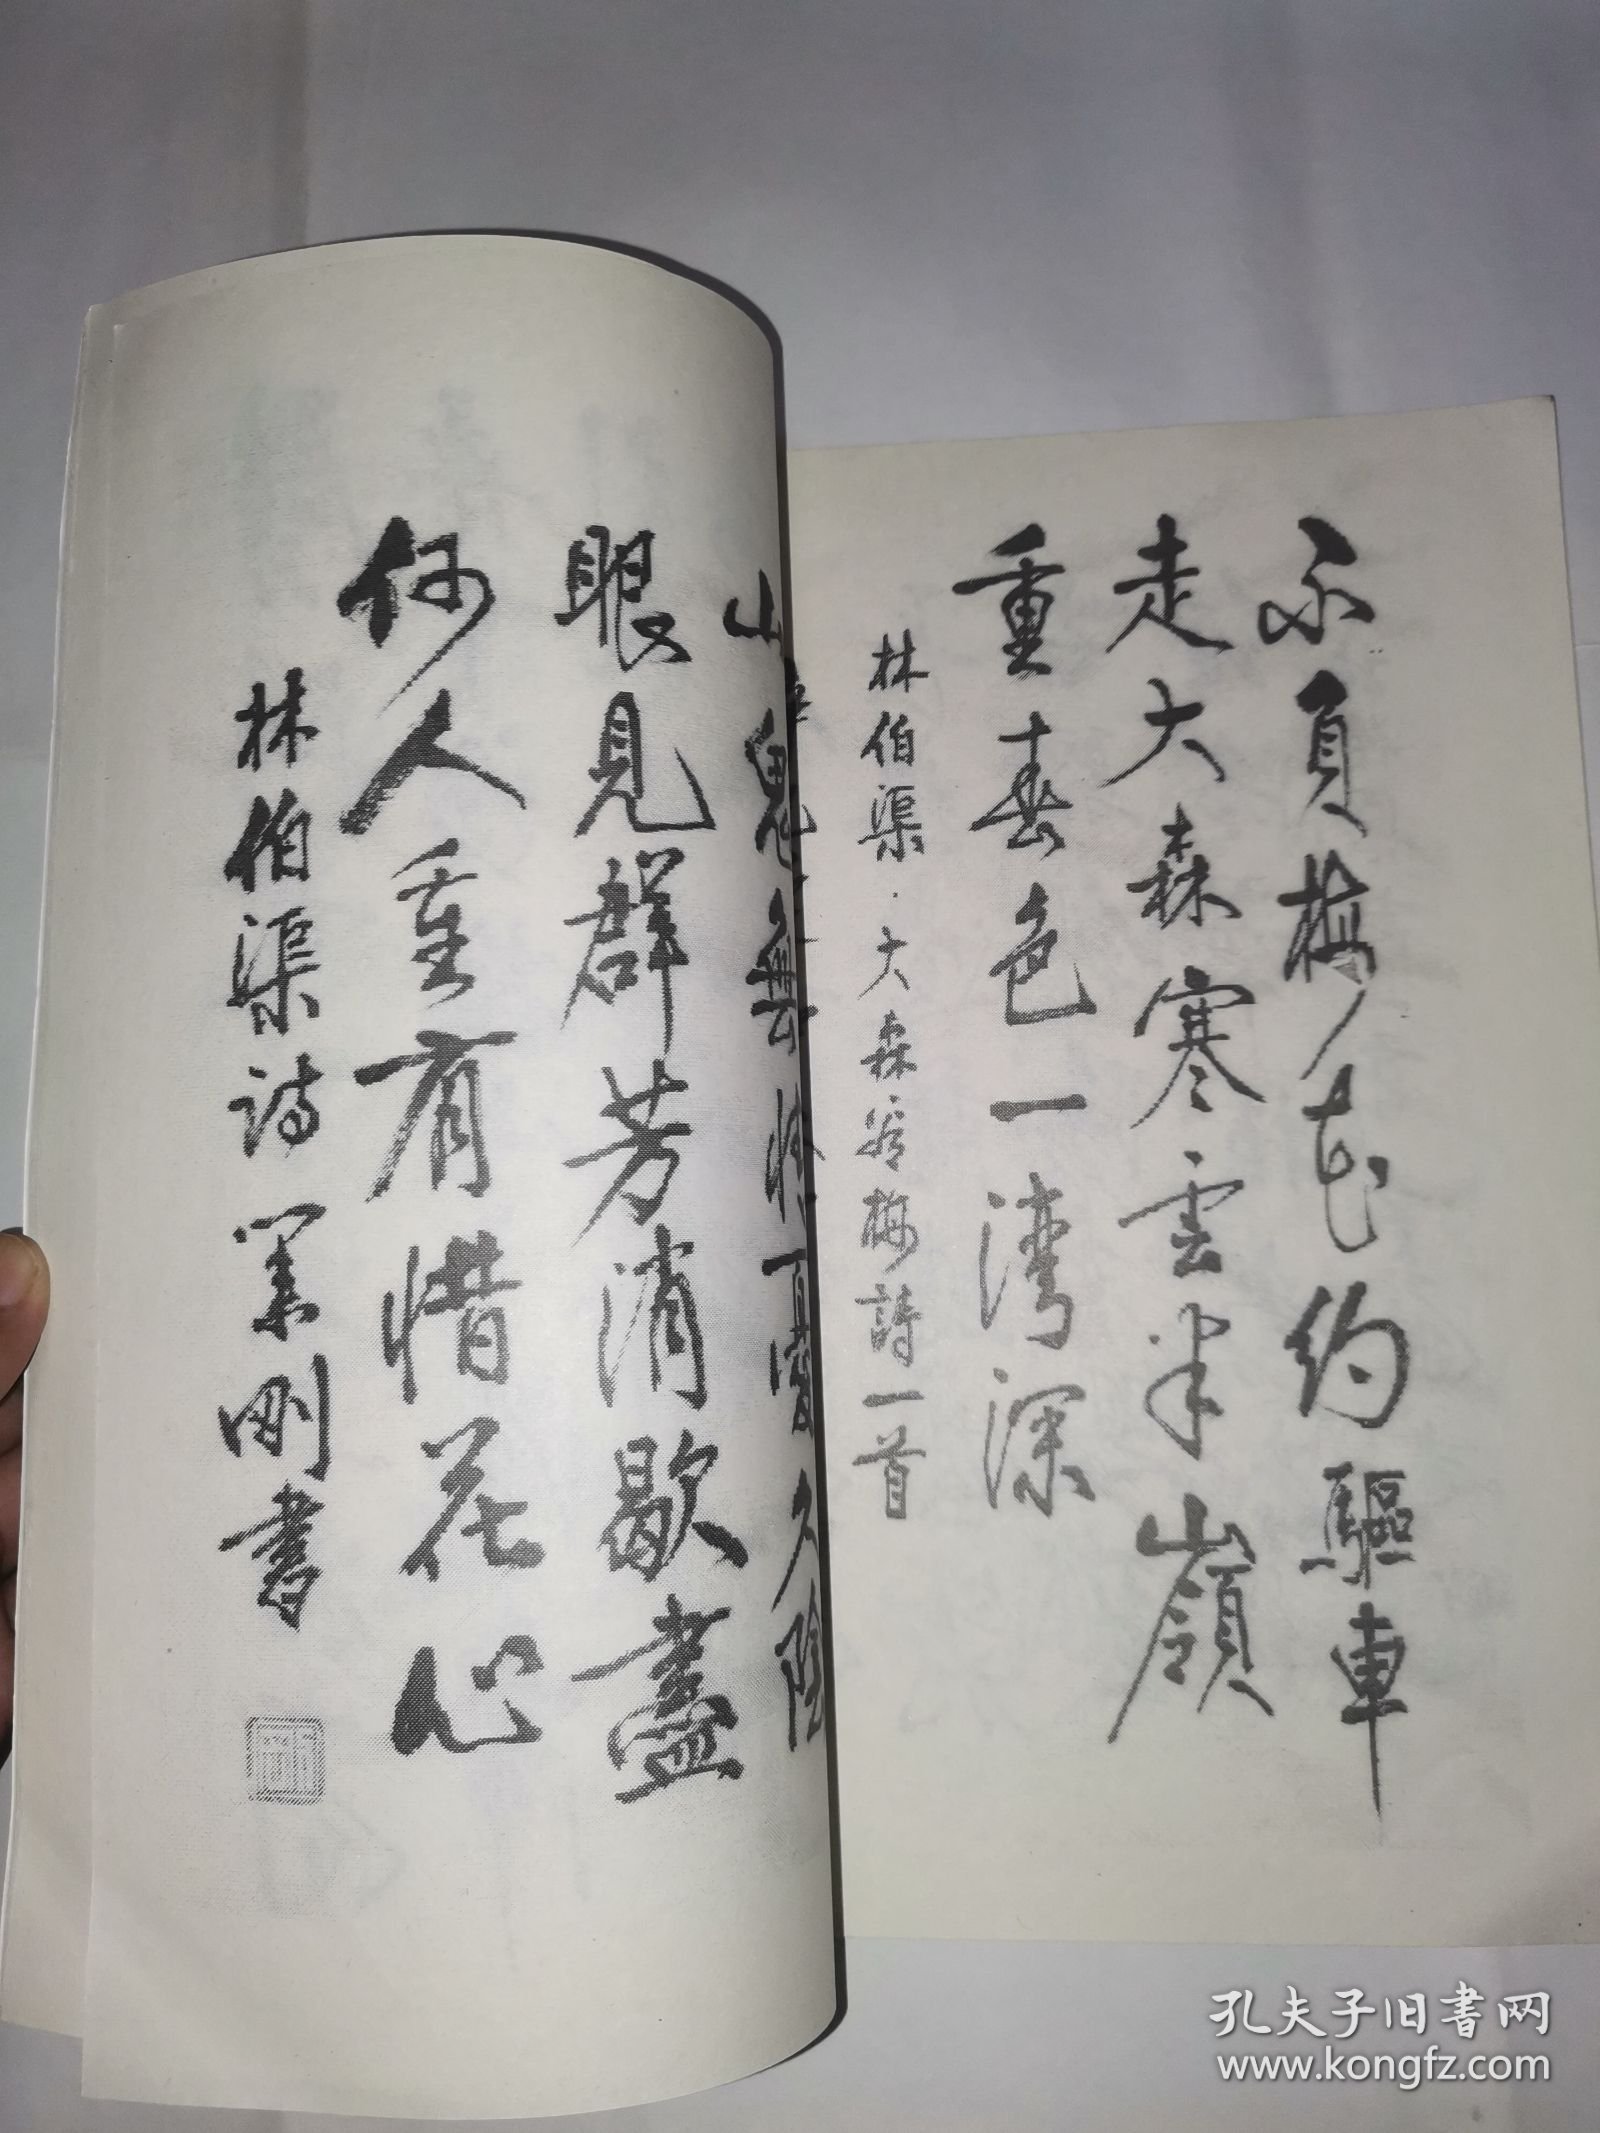 不負梅花約驅車
走大森寒雲半嶺
重春色一灣深
林伯渠·大森梅詩一首
山鬼無久陰
眼見群芳消歇盡
何人重有惜花心
林伯渠詩 剛書
孔夫子旧書网
www.kongfz.com